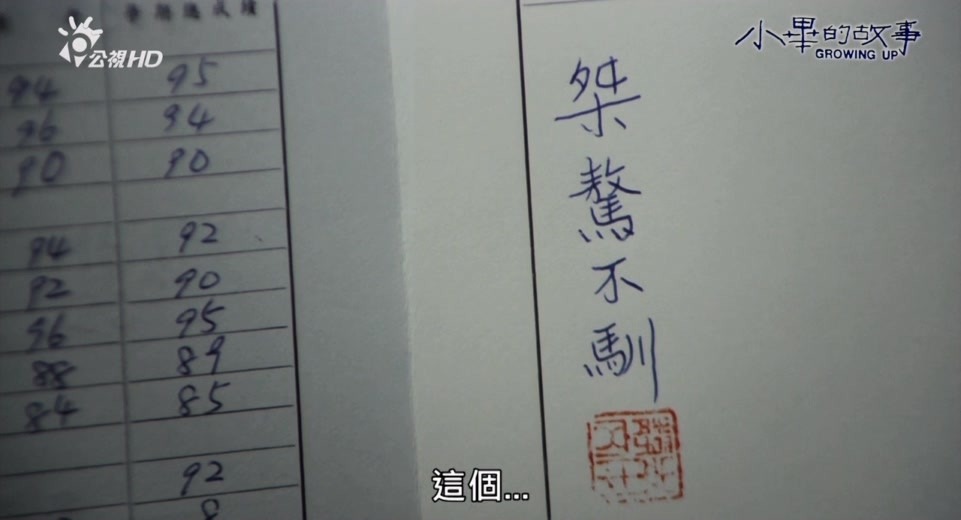 公視HD
小畢的故事
GROWING UP
學期總成績
94 95
96 94
90 90
94 92
92 90
96 95
88 89
84 85
92
桀驁不馴
這個...